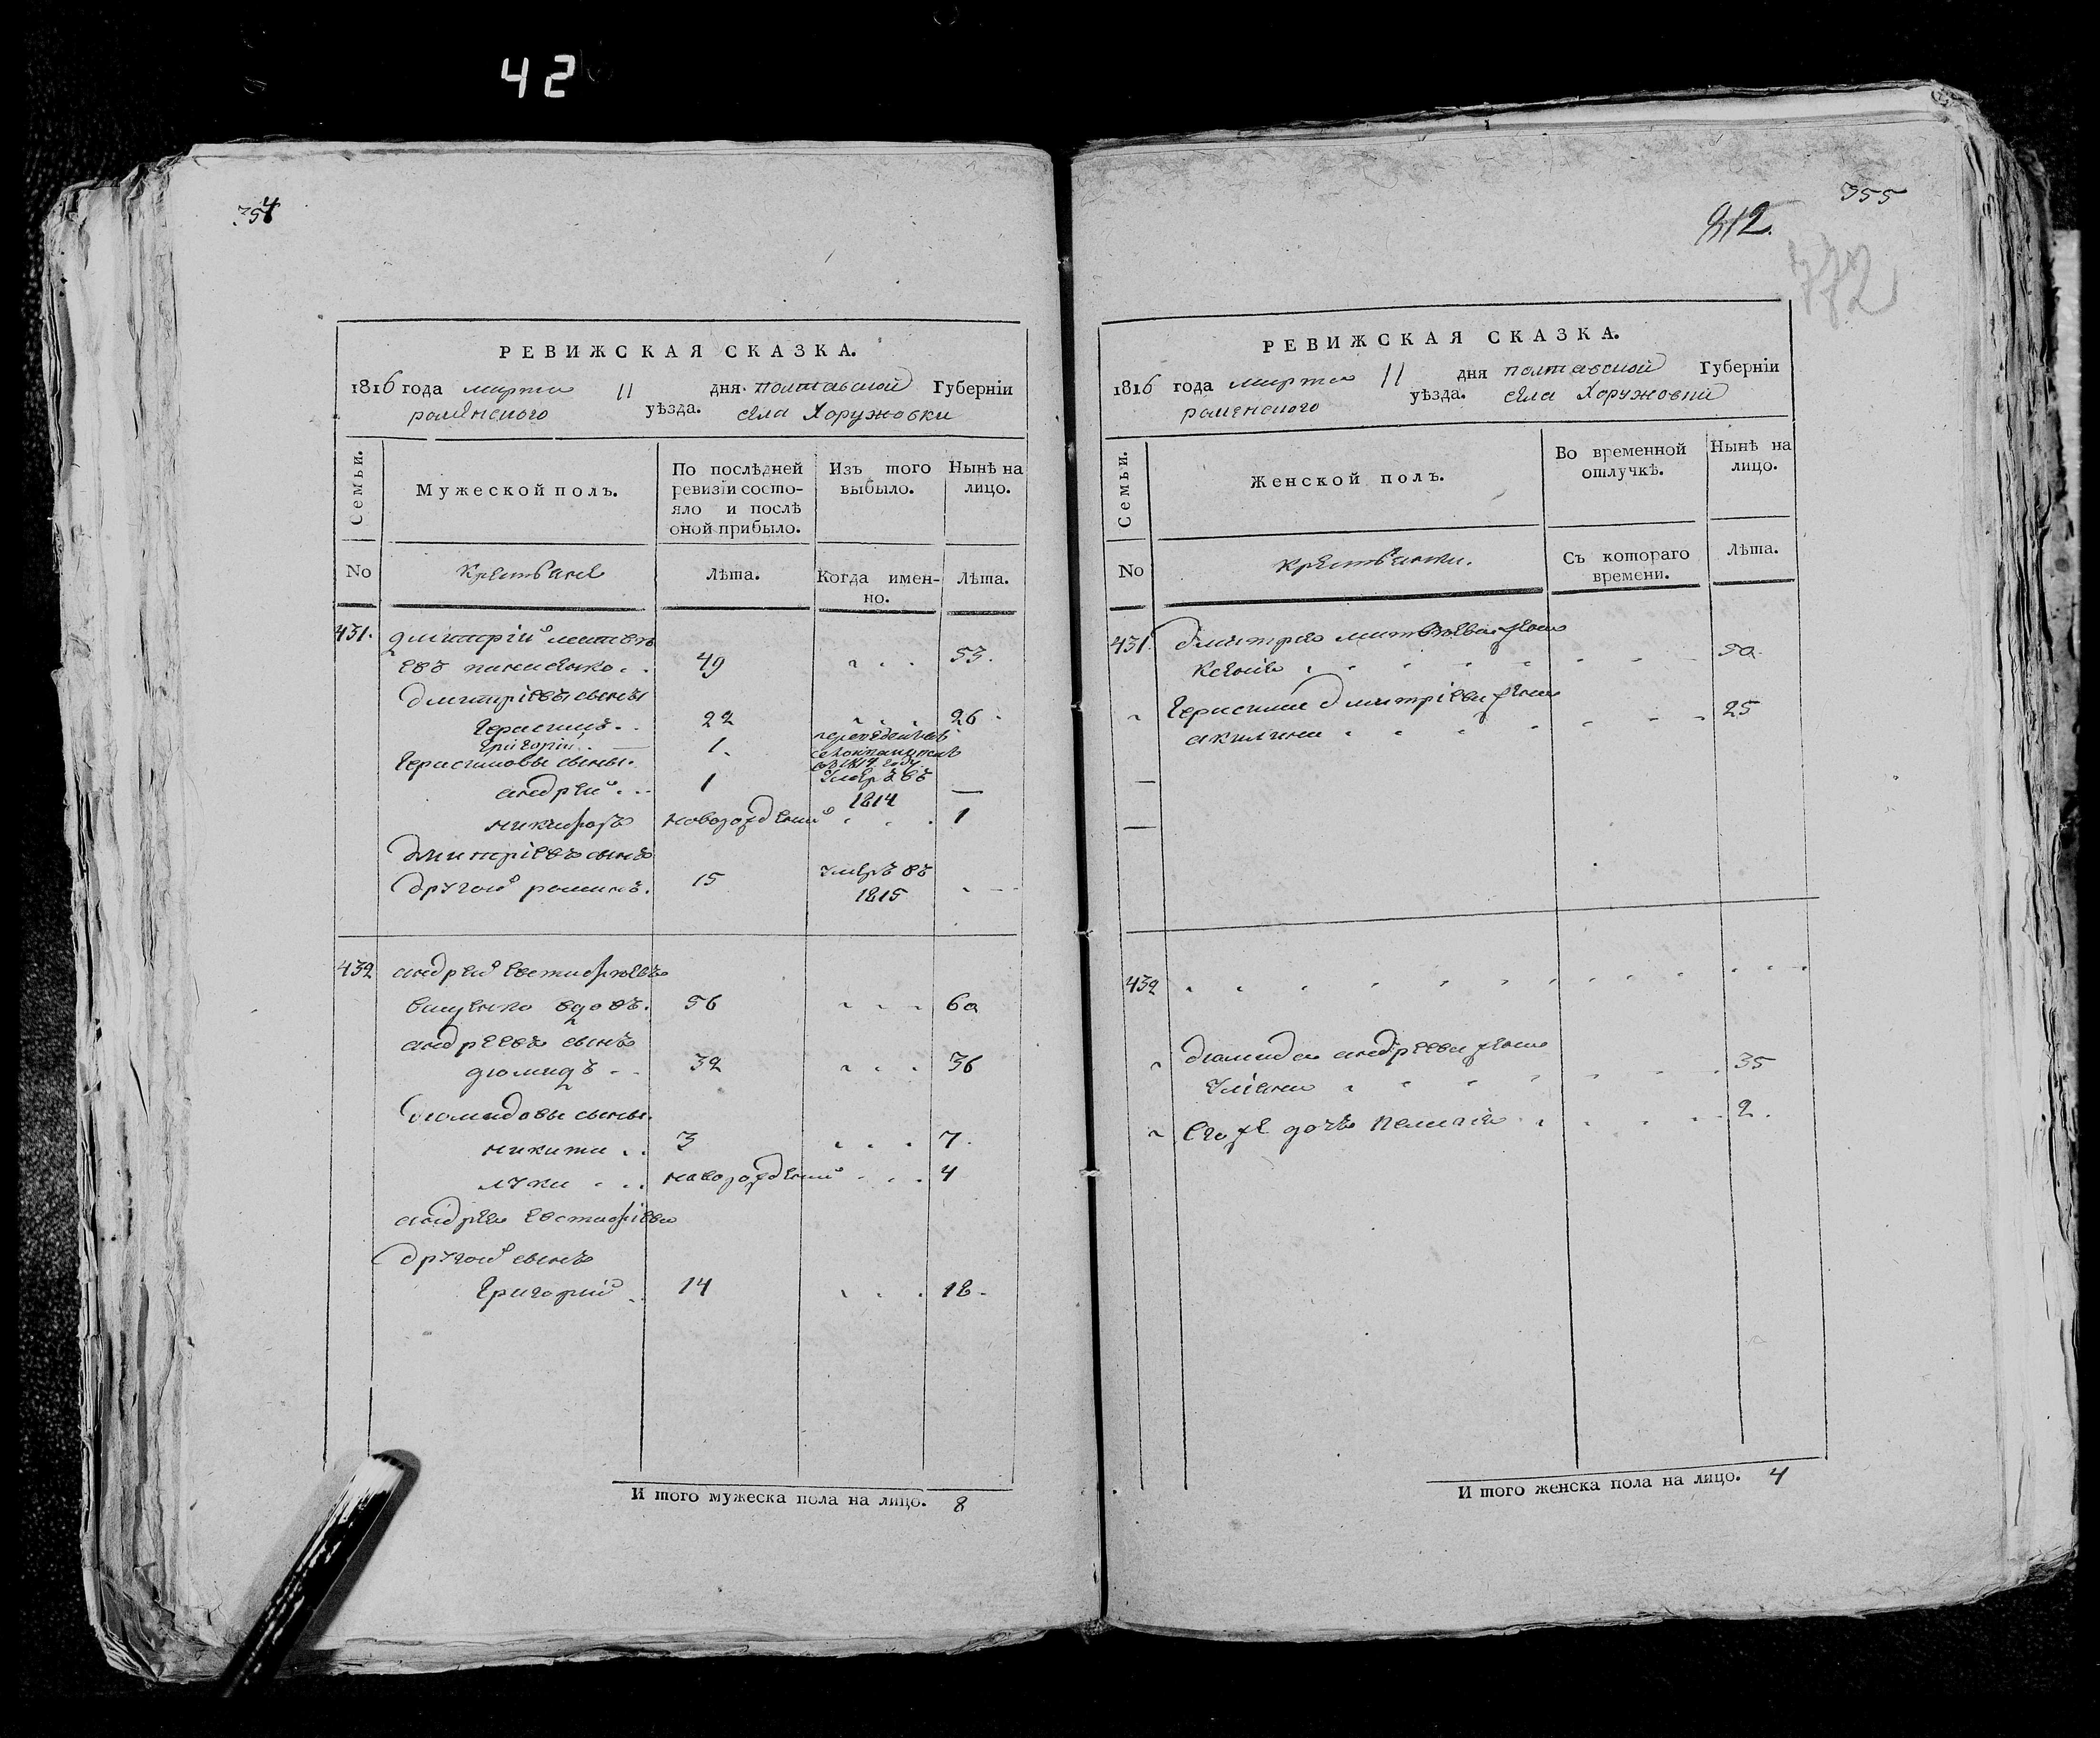 42
354
РЕВИЖСКАЯ СКАЗКА.
1816 года марта 11 дня полтавской Губерніи
роменского уѣзда. села Хоружовки
Семьи.
Мужеской полъ.
По послѣдней
ревизіи состо-
яло и послѣ
оной прибыло.
Изъ того
выбыло.
Нынѣ на
лицо.
No
Крестьяне
Лѣта.
Когда имен-
но.
Лѣта.
431. дмитрій
евъ 49 53.
дмитріевы сыны
Герасимъ 22 26
Григорій 1.
въ 1814 году
Герасимовы сыны.
андрей 1 Умеръ въ
1814 —
никифоръ новорожденый 1
дмитріевъ сынъ
другой романъ. 15 умеръ въ
1815
432 андрей евстафіевъ
вдовъ. 56 60
андреевъ сынъ
диомидъ 32 36
диомидовы сыны.
никита 3 7.
лука новорожденый 4
андрея евстафіева
другой сынъ
Григорій 14 18
И того мужеска пола на лицо. 8
355
812.
772
РЕВИЖСКАЯ СКАЗКА.
1816 года марта 11 дня полтавской Губерніи
роменского уѣзда. села Хоружовки
Семьи.
Женской полъ.
Во временной
отлучкѣ.
Нынѣ на
лицо.
No
крестьянки.
Съ котораго
времени.
Лѣта.
431. дмитрія жена
Ксенія 50
Герасима дмитріева жена
акилина 25
432
диомида андреева жена
уліана 35
его же дочь пелагія 2.
И того женска пола на лицо. 4